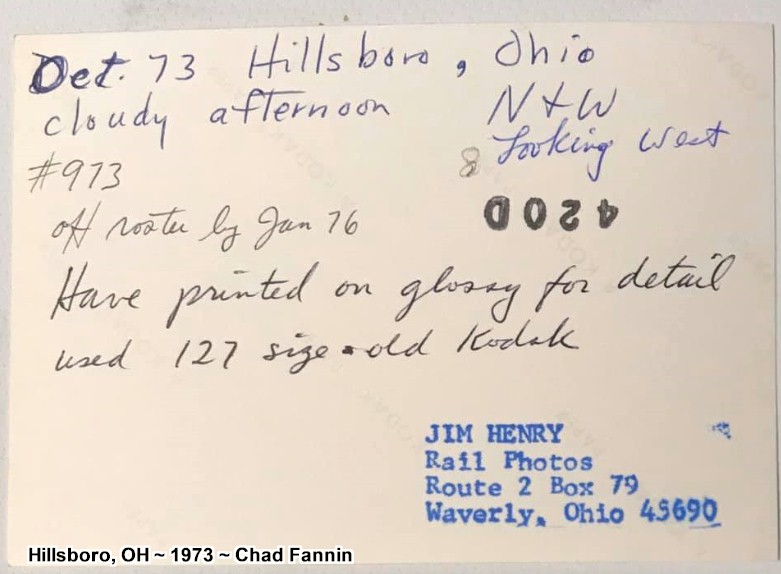 Oct. 73 Hillsboro, Ohio
cloudy afternoon N+W
8 Looking West
#973
off roster by Jan 76
420D
Have printed on glossy for detail
used 127 size - old Kodak
JIM HENRY
Rail Photos
Route 2 Box 79
Waverly, Ohio 45690
Hillsboro, OH ~ 1973 ~ Chad Fannin